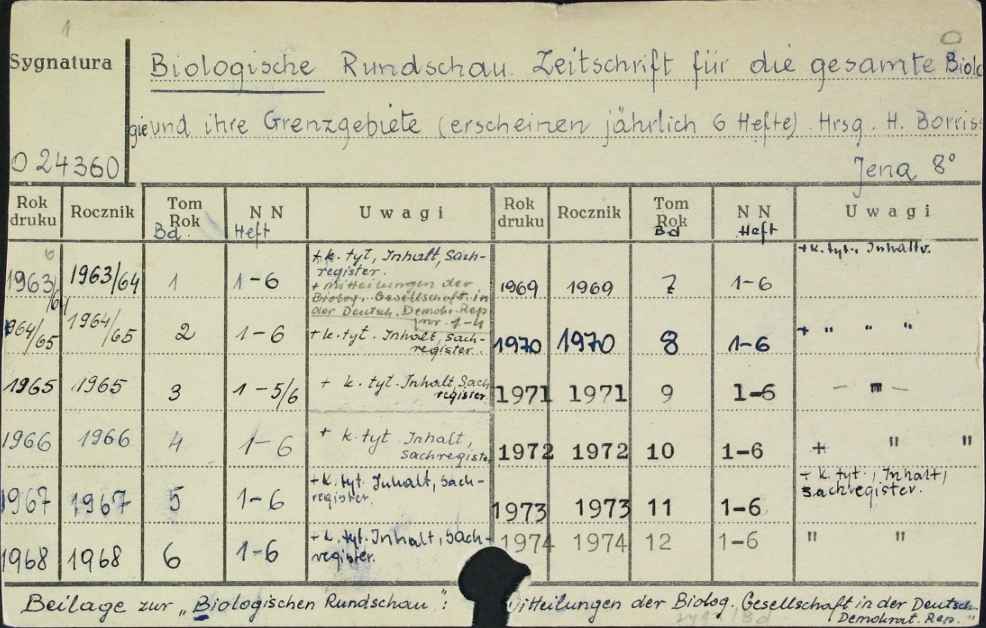 1
Sygnatura
Biologische Rundschau. Zeitschrift für die gesamte Biolo
gie und ihre Grenzgebiete (erscheinen jährlich 6 Hefte) Hrsg. H. Borriss
O 24360
Jena 8°
Rok druku Rocznik Tom Rok Bd. N N Heft Uwagi Rok druku Rocznik Tom Rok Bd N N Heft Uwagi
1963/64 1963/64 1 1-6 + k. tyt, Inhalt, Sach-
register.
+ Mitteilungen der
Biolog. Gesellschaft in
der Deutsch. Demokr. Rep.
nr. 1-4
1964/65 1964/65 2 1-6 + k. tyt. Inhalt, Sach-
register.
1965 1965 3 1-5/6 + k. tyt. Inhalt, Sach
register
1966 1966 4 1-6 + k. tyt Inhalt,
Sachregiste
1967 1967 5 1-6 + k. tyt. Inhalt, Sach-
register.
1968 1968 6 1-6 + k. tyt. Inhalt, Sach-
register.
1969 1969 7 1-6 + k. tyt., Inhaltv.
1970 1970 8 1-6 + " " "
1971 1971 9 1-6 — " —
1972 1972 10 1-6 + " "
1973 1973 11 1-6 + k. tyt., Inhalt,
Sachregister.
1974 1974 12 1-6 " "
Beilage zur "Biologischen Rundschau": Mitteilungen der Biolog. Gesellschaft in der Deutsch.
Demokrat. Rep."